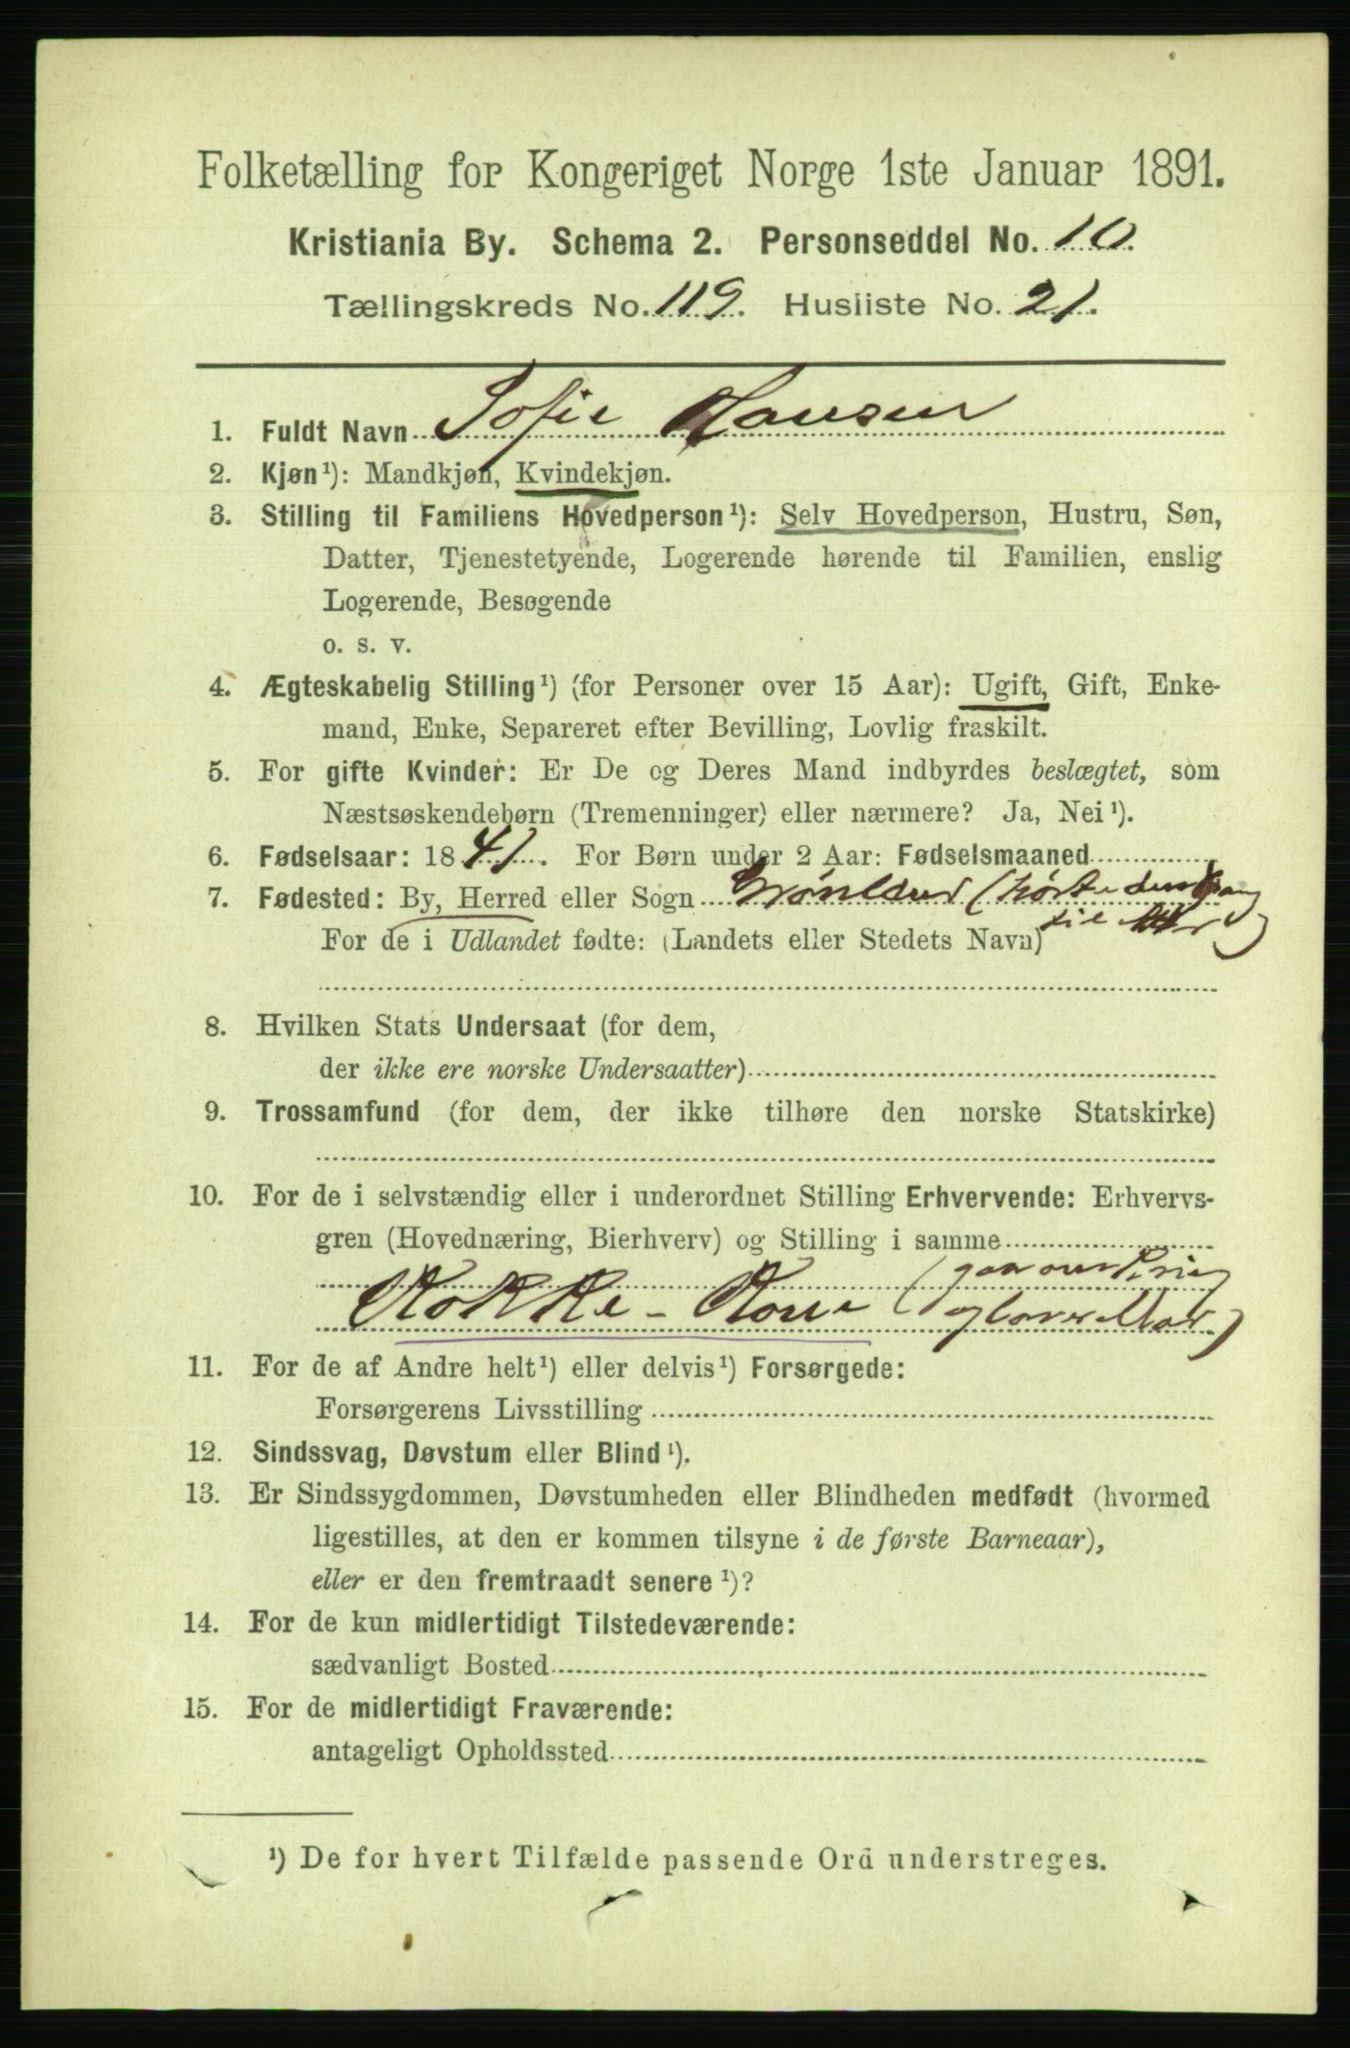 Folketælling for Kongeriget Norge 1ste Januar 1891.
Kristiania By. Schema 2. Personseddel No. 10.
Tællingskreds No. 119. Husliste No. 21.
1. Fuldt Navn Sofie Hansen
2. Kjøn¹): Mandkjøn, Kvindekjøn.
3. Stilling til Familiens Hovedperson¹): Selv Hovedperson, Hustru, Søn,
Datter, Tjenestetyende, Logerende hørende til Familien, enslig
Logerende, Besøgende
o. s. v.
4. Ægteskabelig Stilling¹) (for Personer over 15 Aar): Ugift, Gift, Enke-
mand, Enke, Separeret efter Bevilling, Lovlig fraskilt.
5. For gifte Kvinder: Er De og Deres Mand indbyrdes beslægtet, som
Næstsøskendebørn (Tremenninger) eller nærmere? Ja, Nei¹).
6. Fødselsaar: 1841. For Børn under 2 Aar: Fødselsmaaned
7. Fødested: By, Herred eller Sogn Grönland (hørte dengang
til Aker)
For de i Udlandet fødte: (Landets eller Stedets Navn)
8. Hvilken Stats Undersaat (for dem,
der ikke ere norske Undersaatter)
9. Trossamfund (for dem, der ikke tilhøre den norske Statskirke)
10. For de i selvstændig eller i underordnet Stilling Erhvervende: Erhvervs-
gren (Hovednæring, Bierhverv) og Stilling i samme
Kokke-Kone (gaar omkring
og laver Mad)
11. For de af Andre helt¹) eller delvis¹) Forsørgede:
Forsørgerens Livsstilling
12. Sindssvag, Døvstum eller Blind¹).
13. Er Sindssygdommen, Døvstumheden eller Blindheden medfødt (hvormed
ligestilles, at den er kommen tilsyne i de første Barneaar),
eller er den fremtraadt senere¹)?
14. For de kun midlertidigt Tilstedeværende:
sædvanligt Bosted
15. For de midlertidigt Fraværende:
antageligt Opholdssted
¹) De for hvert Tilfælde passende Ord understreges.